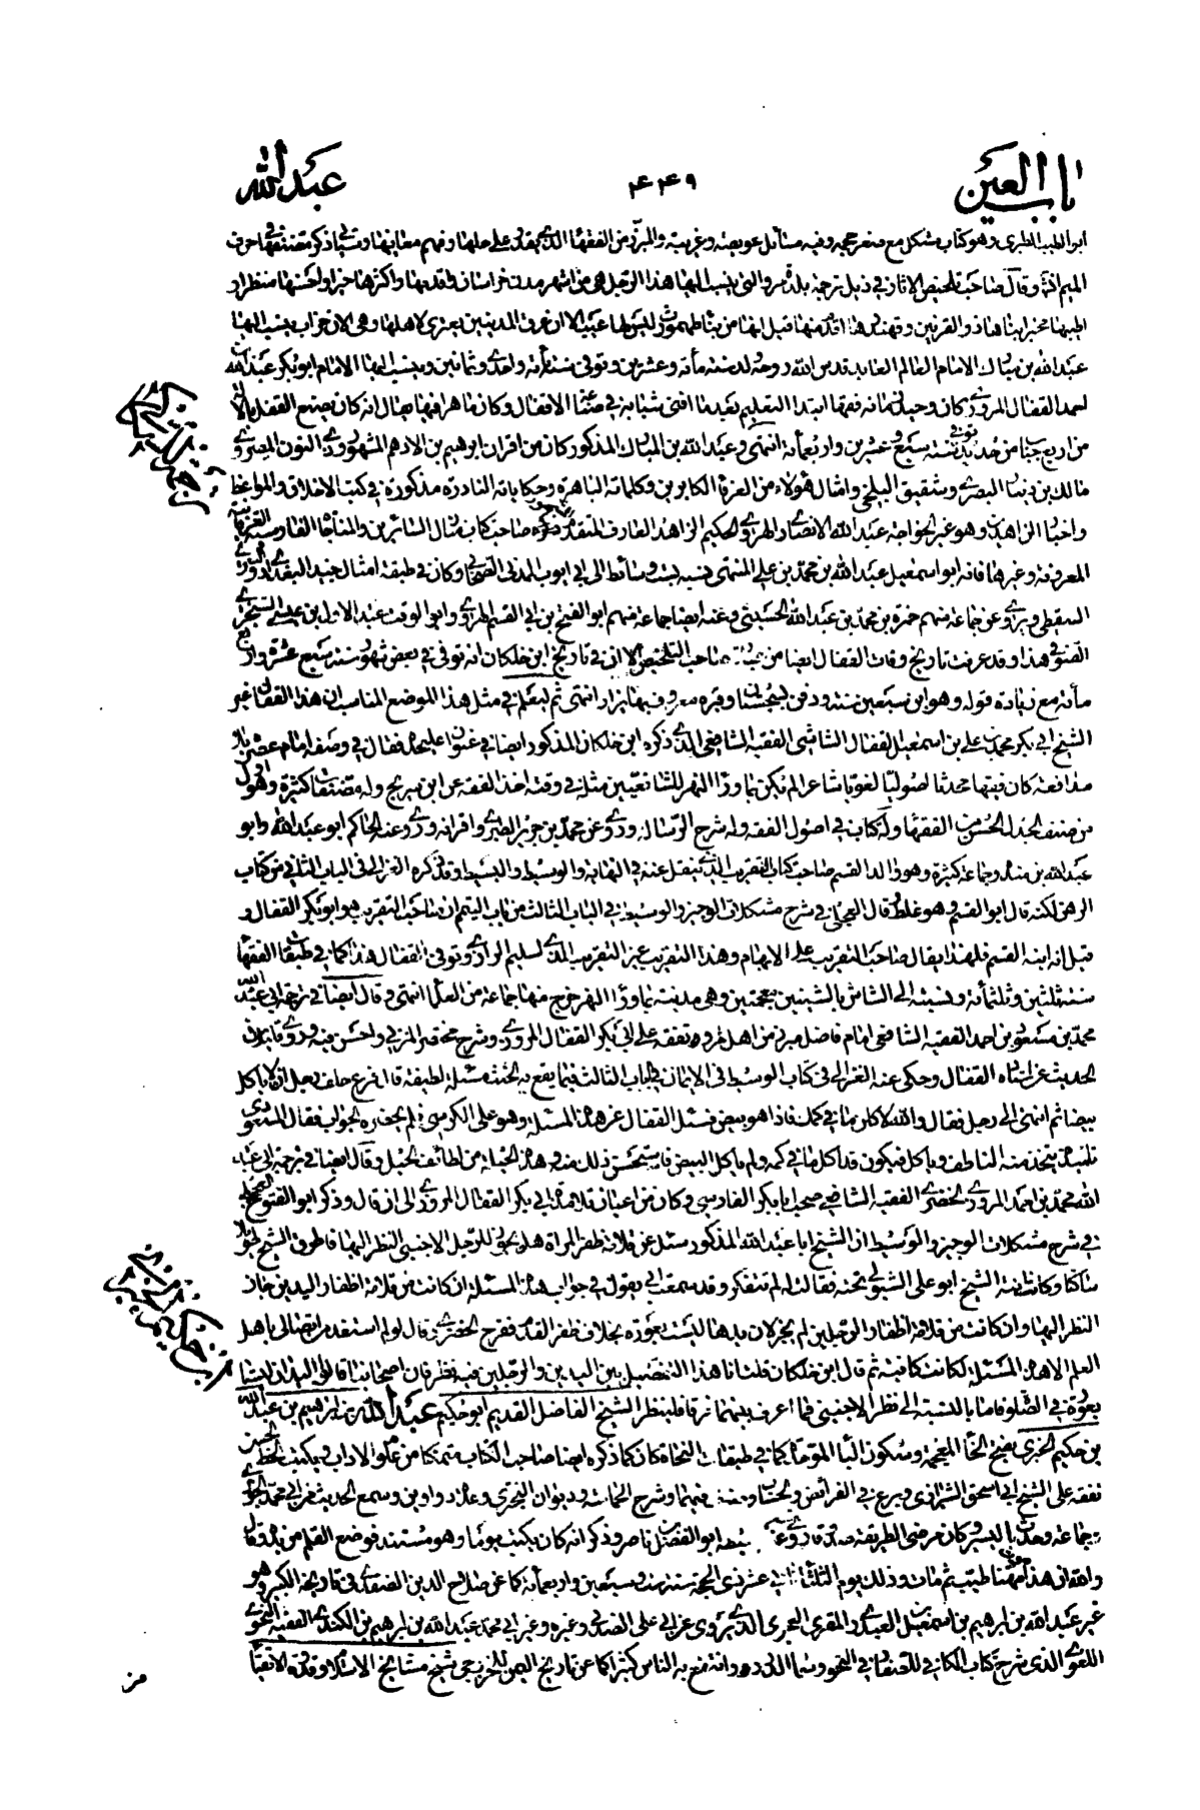 باب العين
٤٤٩
عبد الله
ابو الطيب الطبرى وهو كتاب مشكل مع صغر حجمه وفيه مسائل عويصة وغريبة والمبرّز من الفقهاء الذى يقدر على حلها وفهم معانيها وسياتى ذكر مصنفها فى حرف
الميم انشاء وقال صاحب تلخيص الاثار فى ذيل ترجمة بلدة مرو التى ينسب اليها هذا الرّجل هى من اشهر مدن خراسان واقدمها واكثرها خيرا واحسنها منظرا و
اطيبها مخبرا بناها ذو القرنين وقهندزها اقدم منها قيل انها من بناء طهمورث
عبد الله بن مبارك الامام العالم العابد قدس الله روحه ولد سنة مأته وعشرين وتوفى سنة مأته واحدى وثمانين وينسب اليها الامام ابو بكر عبد الله
احمد القفال المروزى كان وحيد زمانه فقها ابتداء التعليم بعد ما افنى شبابه فى صنعة الاقفال وكان ماهرا فيها يقال انه كان صنع القفل بالالة
من اربع حبات من حديد توفى سنة سبع وعشرين واربعمأته انتهى وعبد الله بن المبارك المذكور كان من اقران ابرهيم بن الادهم المشهور وذى النون المصرى و
مالك بن دينار البصرى وشقيق البلخى وامثال هؤلاء من العرفاء الكابرين وكلماته الباهرة وحكاياته النادرة مذكورة فى كتب الاخلاق والمواعظ
واخبار الزاهدين وهو غير الخواجة عبد الله الانصارى الهروى الحكيم الزاهد العارف المتقدم ذكره صاحب كتاب منازل السائرين والمناجات الفارسية
المعروفة وغيرها فانه ابو اسمعيل عبد الله بن محمد بن على المنتهى نسبه بست وسائط الى ابى ايوب المدنى الصحابى وكان فى طبقة امثال جنيد البغدادى
السقطى ويروى عن جماعة منهم حمزة بن محمد بن عبد الله الحسينى وعنه ايضا جماعة منهم ابو الفتح بن ابى القسم الهروى وابو الوقت عبد الاول بن عيسى السجزى
الصوفى هذا وقد عرفت تاريخ وفات القفال ايضا من عبارة صاحب التلخيص الا ان فى تاريخ ابن خلكان انه توفى فى بعض شهور سنة سبع عشرة واربع
مأته مع زيادة قوله وهو ابن تسعين سنة ودفن بسجستان وقبره معروف بها يزار انتهى ثم ليعلم فى مثل هذا الموضع المناسب ان هذا القفال غير
الشيخ ابى بكر محمد بن على بن اسمعيل القفال الشاشى الفقيه الشافعى الذى ذكره ابن خلكان المذكور ايضا فى عنوان عليحدة فقال فى وصفه امام عصره بلا
مدافعة كان فقيها محدثا اصوليا لغويا شاعرا لم يكن بما وراء النهر للشافعيين مثله فى وقته اخذ الفقه عن ابن سريج وله مصنفات كثيرة وهو اول
من صنف الجدل الحسن من الفقهاء وله كتاب فى اصول الفقه وله شرح الرّسالة وروى عن محمد بن جرير الطبرى واقرانه وروى عنه الحاكم ابو عبد الله وابو
عبد الله بن منده وجماعة كثيرة وهو والد القسم صاحب كتاب التقريب الذى ينقل عنه فى النهاية والوسيط والبسيط وقد ذكره الغزالى فى الباب الثانى من كتاب
الرهن لكنه قال ابو القسم وهو غلط وقال العجلى فى شرح مشكلات الوجيز والوسيط فى الباب الثالث من باب التيمم ان صاحب التقريب هو ابو بكر القفال و
قيل انه ابنه القسم فلهذا يقال صاحب التقريب على الابهام وهذا التقريب غير التقريب الذى لسليم الرازى وتوفى القفال هذا كما فى طبقات الفقهاء
سنة ستّ وثلثين وثلثمأته ونسبته الى الشاش بالشينين معجمتين وهى مدينة بما وراء النهر خرج منها جماعة من العلماء انتهى وقال ايضا فى ترجمة ابى عبد الله
محمد بن مسعود بن احمد الفقيه الشافعى امام فاضل مبرز من اهل مرو تفقه على ابى بكر القفال المروزى وشرح مختصر المزنى واحسن فيه وروى قليلا من
الحديث عن استاده القفال وحكى عنه الغزالى فى كتاب الوسيط فى الايمان فى الباب الثالث فيما يقع به الحنث مسئلة لطيفة قال فرع حلف رجل ان لا ياكل
بيضا ثم انتهى الى رجل فقال والله لاكلن مما فى كمك فاذا هو بيض فسئل القفال عن هذه المسئلة وهو على الكرسى فلم يحضره الجواب فقال المسعودى
تلميذه يتخذ منه الناطف وياكل فيكون قد اكل مما فى كمه ولم ياكل البيض فاستحسن ذلك منه وهذه الحيلة من لطائف الحيل وقال ايضا فى ترجمة ابى عبد
الله محمد بن احمد المروزى الخضرى الفقيه الشافعى صحب ابا بكر الفارسى وكان من اعيان تلامذة ابى بكر القفال المروزى الى ان قال وذكر ابو الفتوح العجلى
فى شرح مشكلات الوجيز والوسيط ان الشيخ ابا عبد الله المذكور سئل عن قلامة ظفر المراة هل يجوز للرّجل الاجنبى النظر اليها فاطرق الشيخ طويلا
ساكتا وكانت ابنة الشيخ ابو على الشبوى تحته فقالت له لم تتفكر وقد سمعت ابى يقول فى جواب هذه المسئلة ان كانت من قلامة اظفار اليدين جاز
النظر اليها وان كانت من قلامة اظفار الرّجلين لم يجز لان يدها ليست بعورة بخلاف ظفر القدم ففرح الخضرى وقال لو لم استفد من اتصالى باهل
العلم الا هذه المسئلة لكانت كافية ثم قال ابن خلكان قلت انا هذا التفصيل بين اليدين والرّجلين فيه نظر فان اصحابنا قالوا اليدان ليستا
بعورة فى الصلوة فاما بالنسبة الى نظر الاجنبى فما اعرف بينهما فرقا فلينظر الشيخ الفاضل القديم ابو حكيم عبد الله بن ابرهيم بن عبد الله
بن حكيم الخبرى بفتح الخاء المعجمة وسكون الباء الموحدة كما فى طبقات النحاة كان كما ذكره ايضا صاحب الكتاب متمكنا من علوم الاداب ويكتب الخط الحسن
تفقه على الشيخ ابى اسحق الشيرازى وبرع فى الفرائض والحساب وصنف فيهما وشرح الحماسة وديوان البحترى وعدة دواوين وسمع الحديث من ابى محمد الجوهرى
وجماعة وحدث باليسير وكان مرضى الطريقة ابو الفضل بن ناصر وذكر انه كان يكتب يوما وهو مستند فوضع القلم من يده وقال
والله ان هذا موت مهنا طيب ثم مات وذلك يوم الثلثاء عشر ذى الحجة سنة ست وسبعين واربعمأته كما عن صلاح الدين الصفدى فى تاريخه الكبير وهو
غير عبد الله بن ابرهيم بن اسمعيل العبدرى المقرى الذى يروى عن ابى على الصدفى وغيره وغير ابى محمد عبد الله بن ابرهيم بن الكندى الفقيه النحوى
اللغوى الذى شرح كتاب الكافى للصفار فى النحو وانتفع به الناس كثيرا كما عن تاريخ اليمن للخزرجى شيخ مشايخ الاسلام وقدوة الاتقياء
من